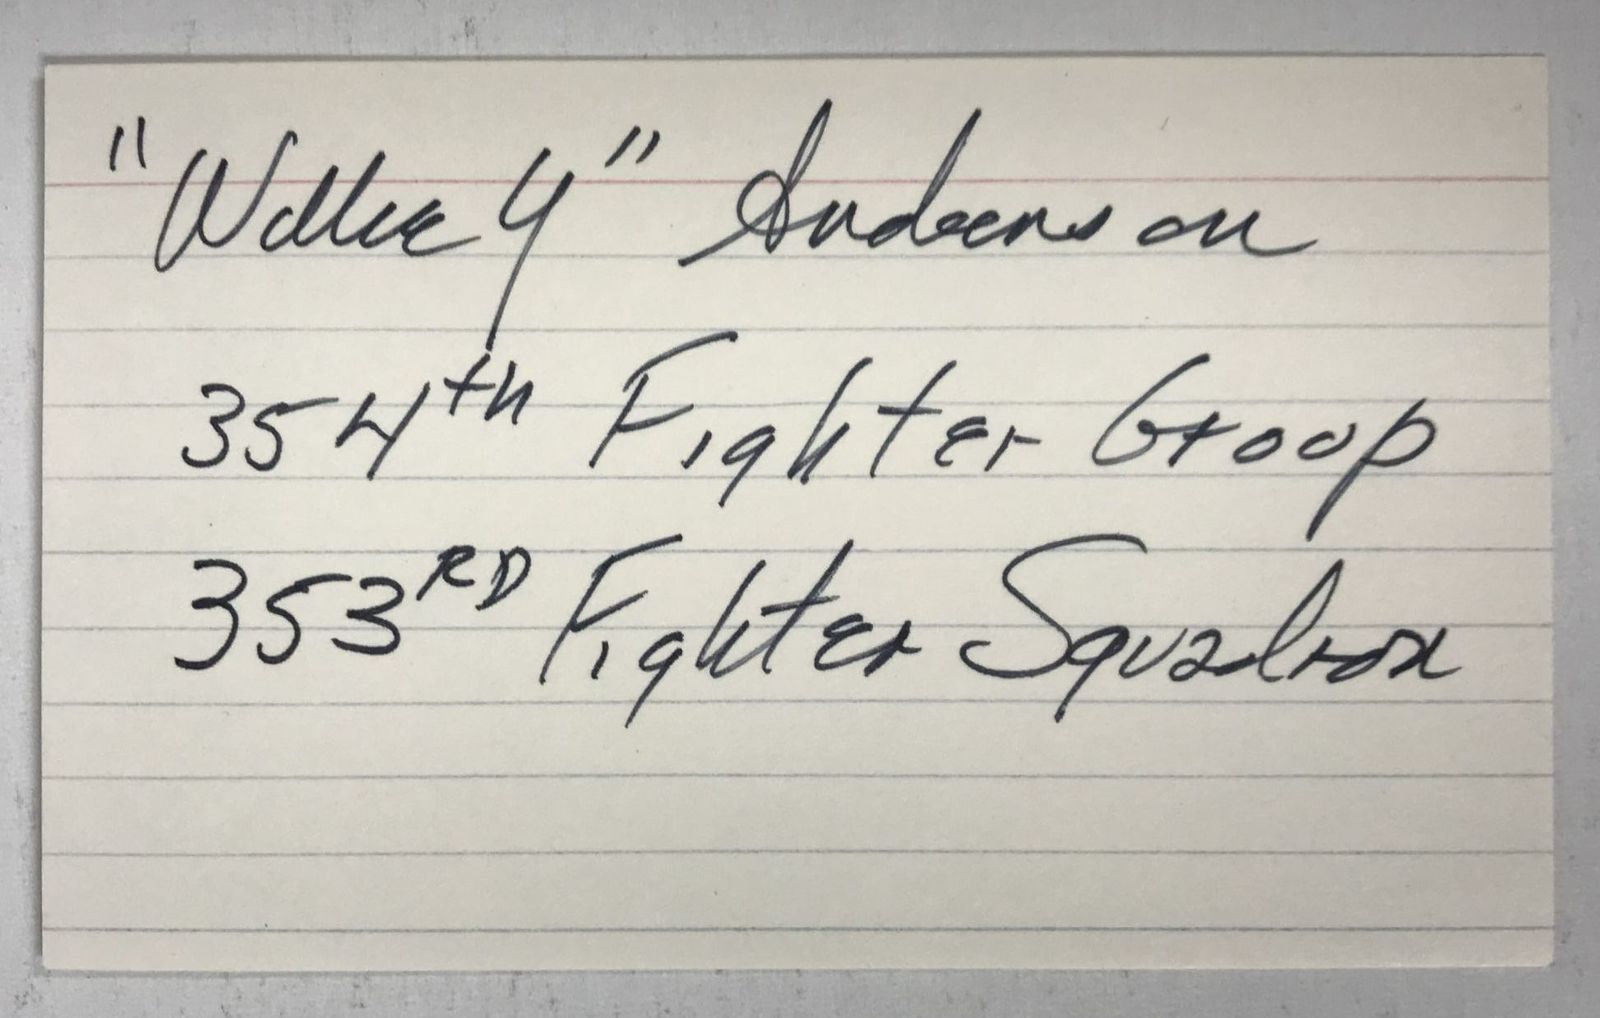 "Willie Y" Anderson
354th Fighter Group
353RD Fighter Squadron